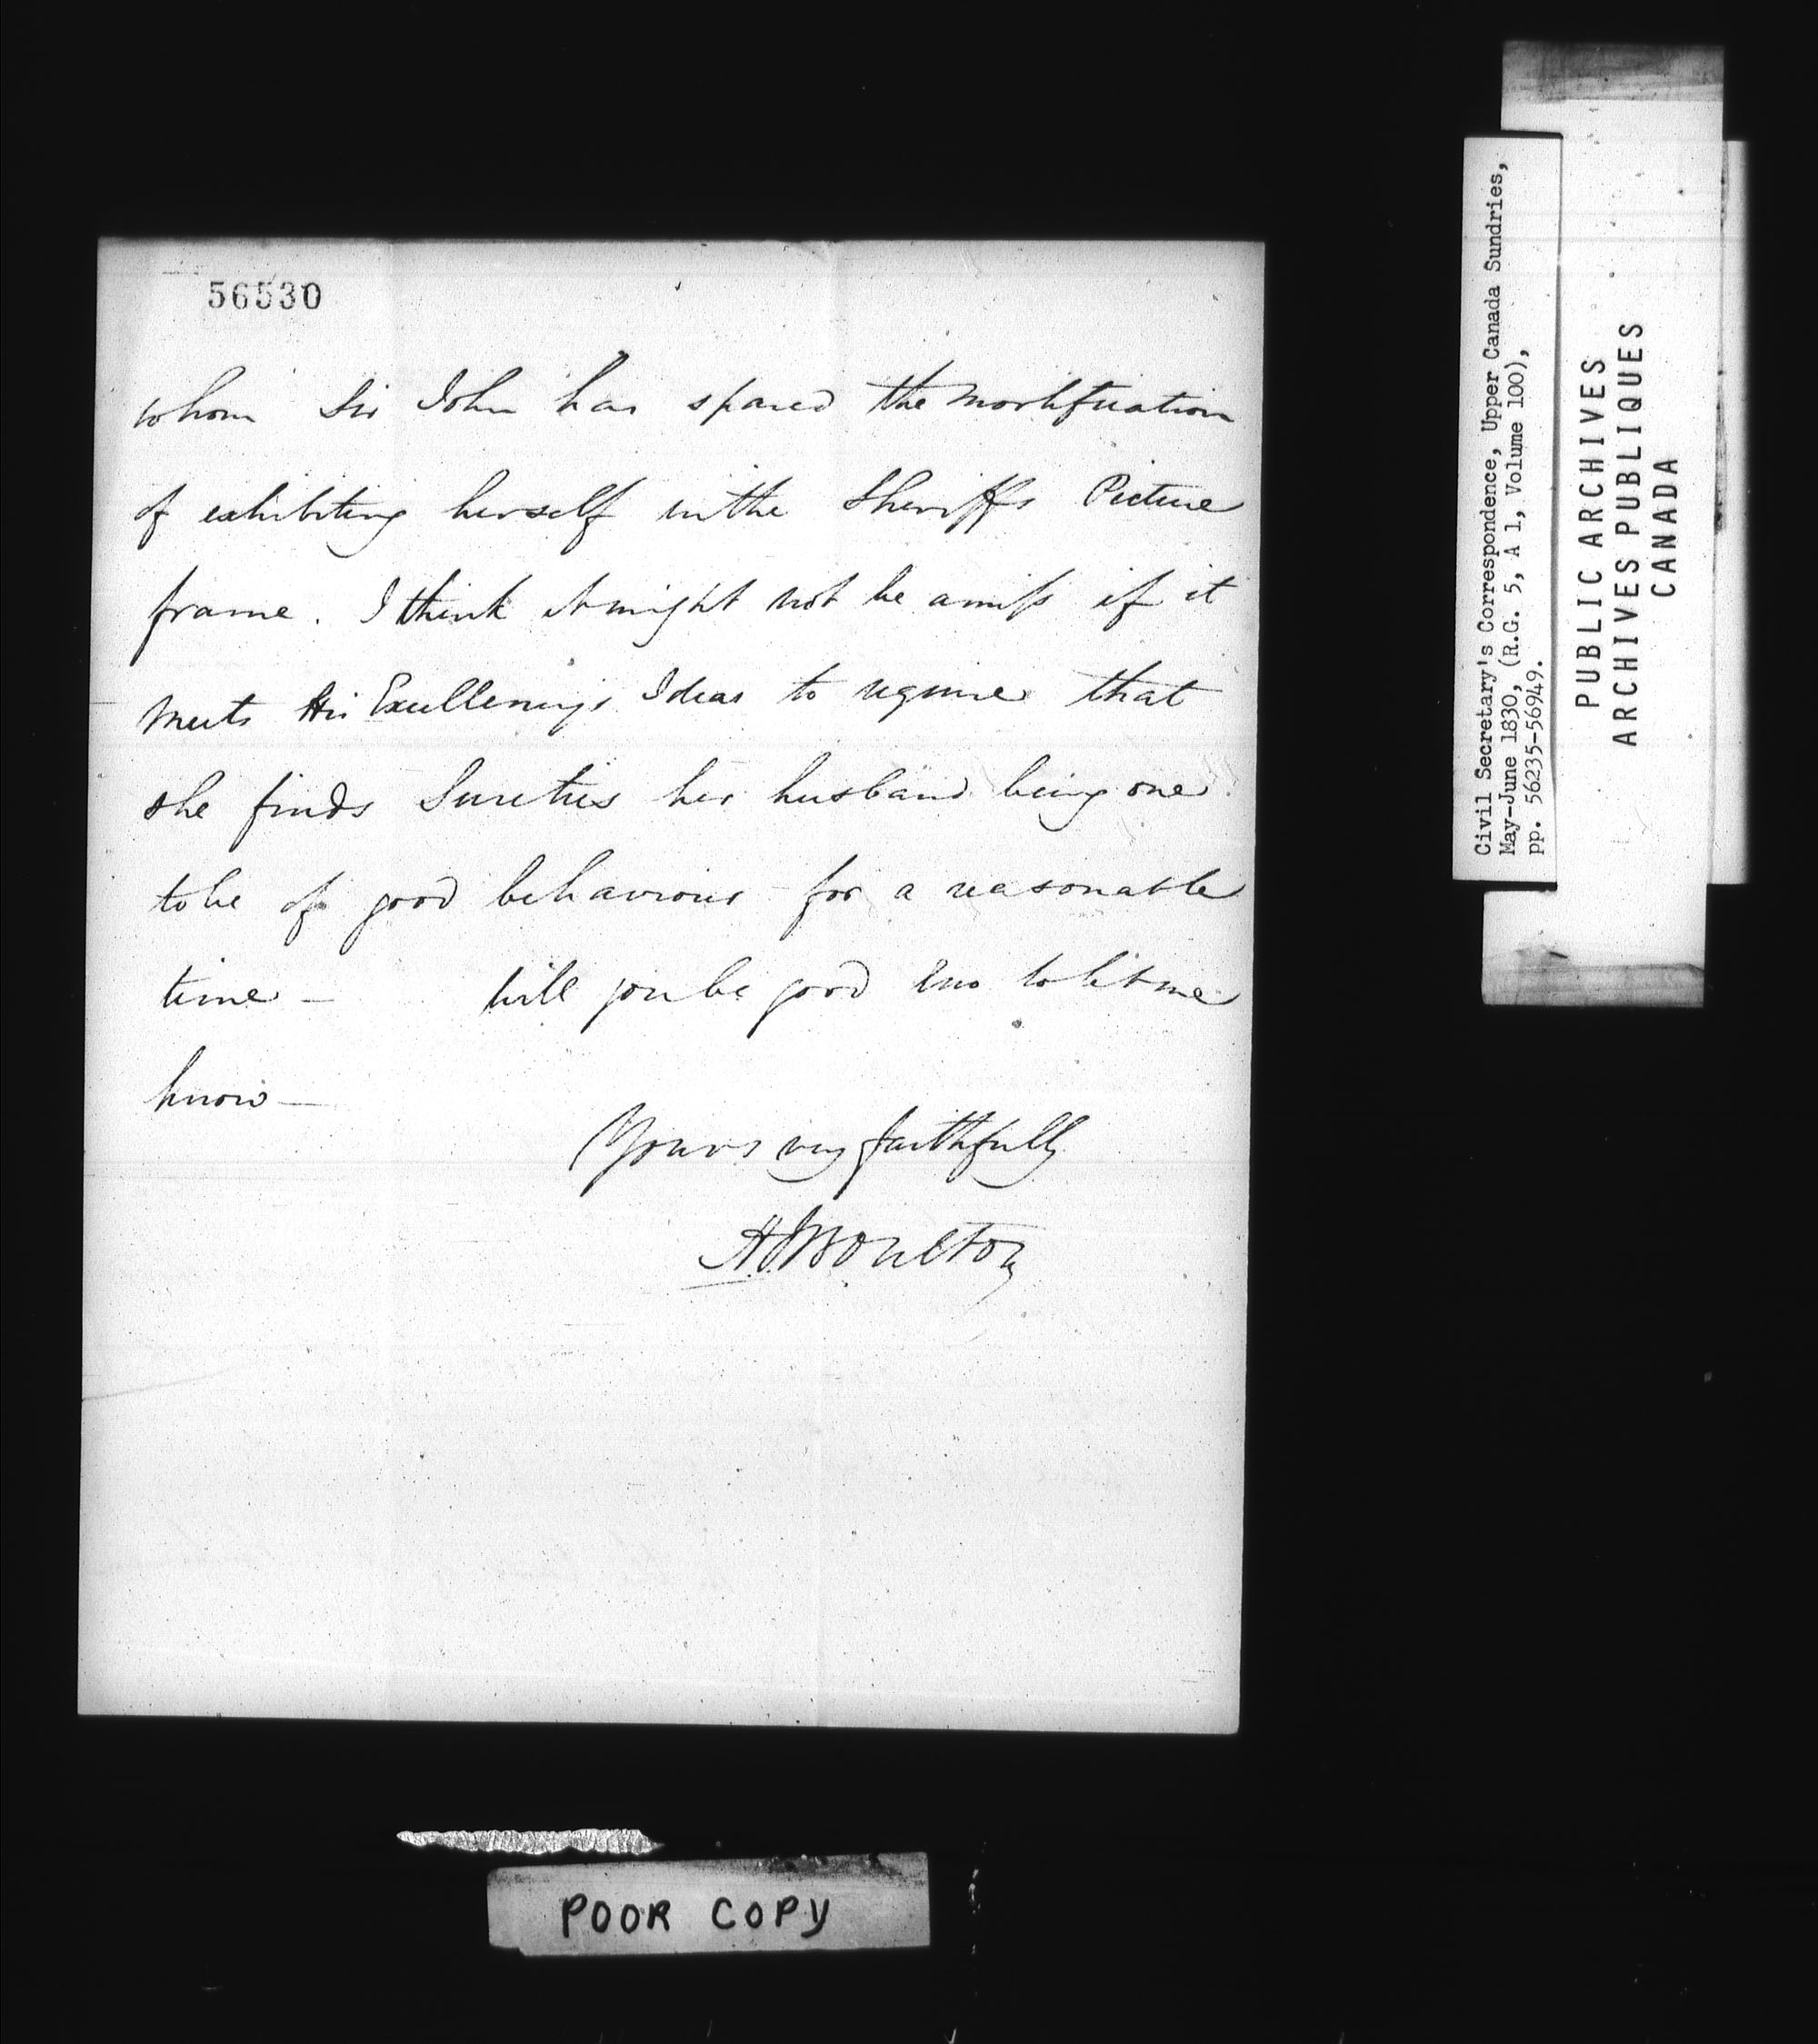 56530
whom Sir John has spared the mortification
of exhibiting herself in the Sheriffs Picture
frame. I think it might not be amiss if it
meets His Excellency's Ideas to require that
she finds Sureties her husband being one
to be of good behaviour for a reasonable
time — Will you be good Eno to let me
know —
Yours very faithfully
HJBoulton
Civil Secretary's Correspondence, Upper Canada Sundries,
May-June 1830, (R.G. 5, A 1, Volume 100),
pp. 56235-56949.
PUBLIC ARCHIVES
ARCHIVES PUBLIQUES
CANADA
POOR COPY